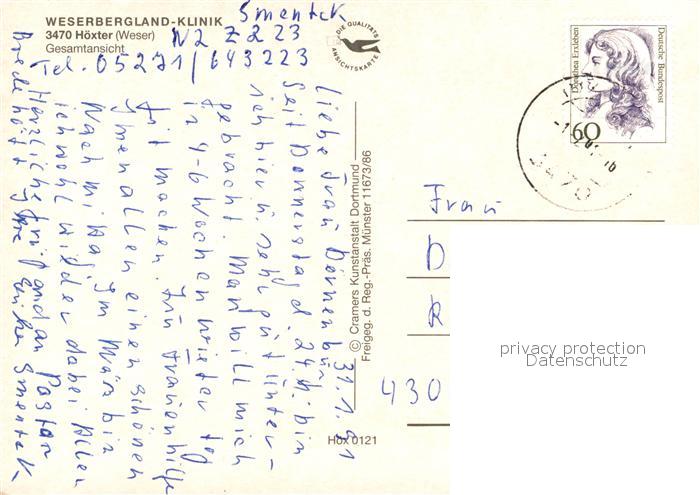 WESERBERGLAND-KLINIK
3470 Höxter (Weser)
Gesamtansicht
Smentek
N2 Z 223
Tel. 05271/643223
DIE QUALITÄTS
ANSICHTSKARTE
31.1.91
Liebe Frau
Seit Donnerstag d. 24.1. bin
ich hier u. sehr gut unter-
gebracht. Man will mich
in 4-6 Wochen wieder
fit machen. Frauenhilfe
Ihnen allen einen schönen
Nachmittag. Im März bin
ich wohl wieder dabei. Allen
Herzliche Grüße an Pastor
Ihre Smentek
© Cramers Kunstanstalt Dortmund
Freigeg. d. Reg.-Präs. Münster 11673/86
Höx 0121
Dorothea Erxleben
Deutsche Bundespost
60
3470
Frau
D
R
430
privacy protection
Datenschutz